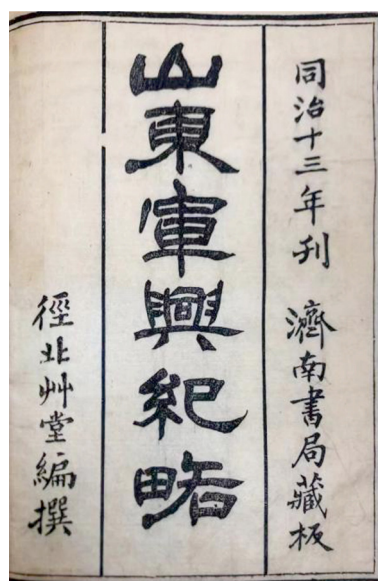 同治十三年刊 濟南書局藏板
山東軍興紀略
徑北艸堂編撰